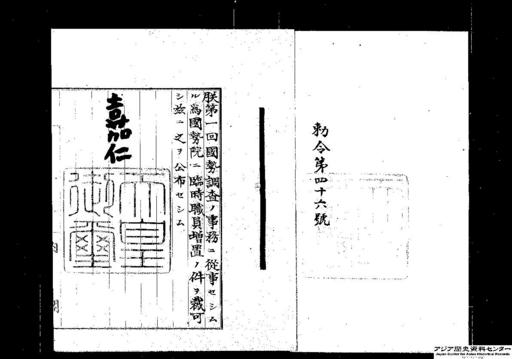 勅令第四十六號
朕第一回國勢調査ノ事務ニ從事セシム
ル爲國勢院ニ臨時職員增置ノ件ヲ裁可
シ茲ニ之ヲ公布セシム
嘉仁
天皇
御璽
アジア歴史資料センター
Japan Center for Asian Historical Records